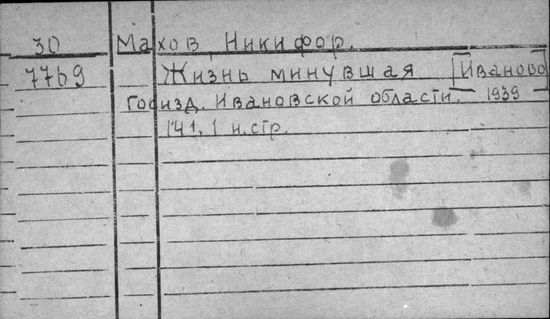 30 Махов, Никифор.
7769 Жизнь минувшая [Иваново]
Госизд. Ивановской области. 1939
141, 1 н.стр.